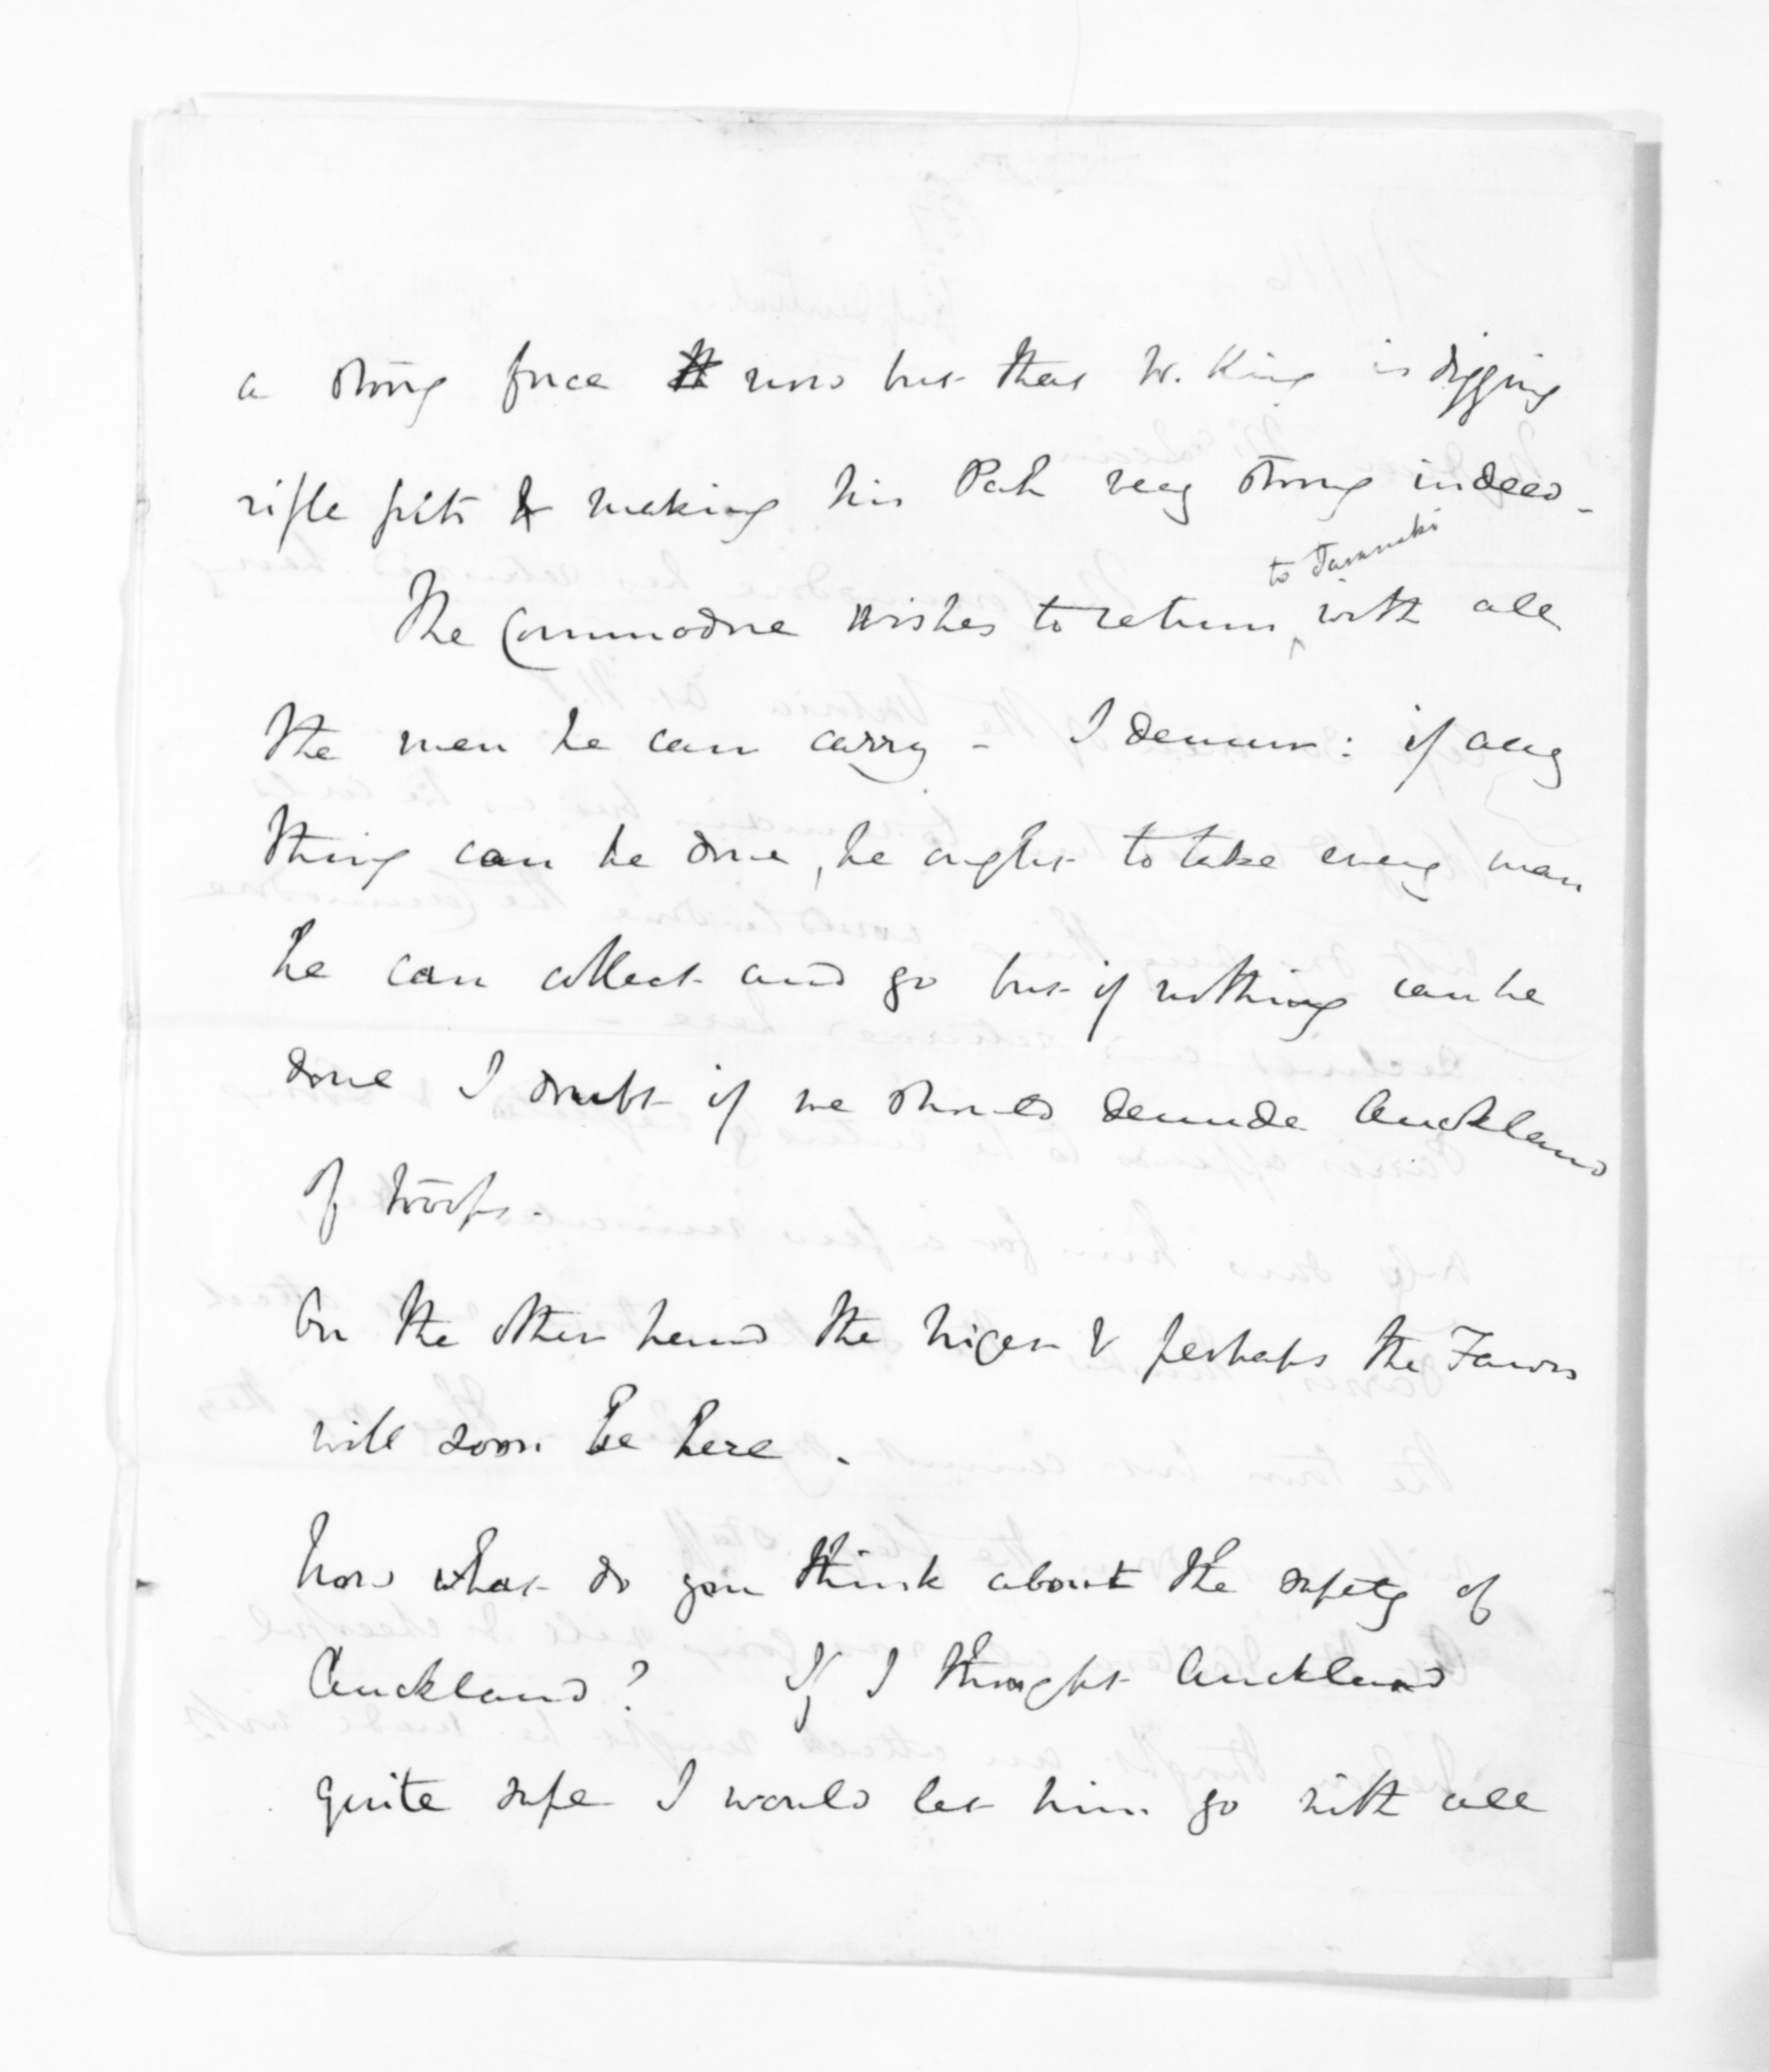 a strong force now but that W. King is digging
rifle pits & making his Pah very strong indeed -
to Taranaki
The Commodore wishes to return with all
the men he can carry - I demur: if any
thing can be done, he ought to take every man
he can collect and go but if nothing can be
done I doubt if we should denude Auckland
of troops.
On the other hand the Niger & perhaps the Fawn
will soon be here.
Now what do you think about the safety of
Auckland? If I thought Auckland
quite safe I would let him go with all